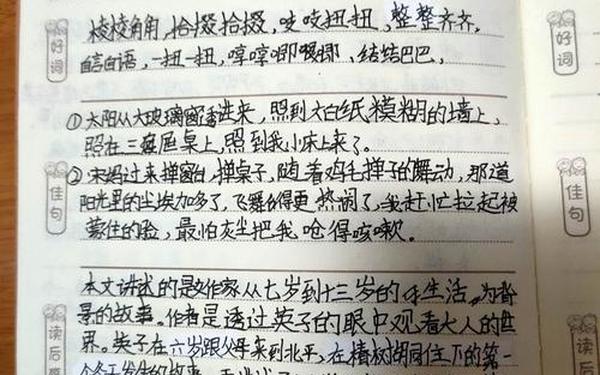 好词
棱棱角角,拾掇拾掇,吱吱扭扭,整整齐齐,
自言自语,一扭一扭,哼哼唧唧,结结巴巴,
好词
①太阳从大玻璃窗透进来,照到大白纸糊的墙上,
照在三屉桌上,照到我小床上来了。
佳句
②宋妈过来掸窗台,掸桌子,随着鸡毛掸子的舞动,那道
阳光里的尘埃加多了,飞舞得更热闹了,我赶忙拉起被
蒙住的脸,最怕灰尘把我呛得咳嗽。
佳句
本文讲述的是作家从七岁到十三岁的生活为背
景的故事。作者是透过英子的眼中观看大人的世
界。英子在六岁跟父母来到北平,在椿树胡同住下的第一
读后
个冬天发生的故事
读后